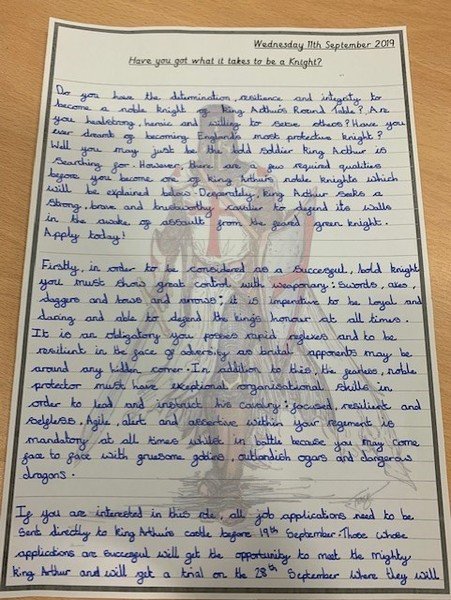 Wednesday 11th September 2019
Have you got what it takes to be a Knight?
Do you have the determination, resilience and integrity to
become a noble knight of King Arthur's Round Table? Are
you headstrong, heroic and willing to serve others? Have you
ever dreamt of becoming England's most protective knight?
Well you may just be the bold soldier King Arthur is
searching for. However, there are a few required qualities
before you become one of King Arthur's noble knights which
will be explained below. Desperately, King Arthur seeks a
strong, brave and trustworthy cavalier to defend its walls
in the awake of assault from the feared green knight.
Apply today!
Firstly, in order to be considered as a successful, bold knight
you must show great control with weaponary: swords, axes,
daggers and bows and arrows; it is imperative to be loyal and
daring and able to defend the king's honour at all times.
It is an obligatory you posses rapid reflexes and to be
resilient in the face of adversity as brutal opponents may be
around any hidden corner. In addition to this, the fearless, noble
protector must have exceptional organisational skills in
order to lead and instruct his cavalry: focused, resilient and
selfless. Agile, alert and assertive within your regement is
mandatory at all times whilst in battle because you may come
face to face with gruesome goblins, outlandish ogars and dangerous
dragons.
If you are interested in this role, all job applications need to be
sent directly to King Arthur's castle before 19th September. Those whose
applications are successful will get the opportunity to meet the mighty
King Arthur and will get a trial on the 28th September where they will